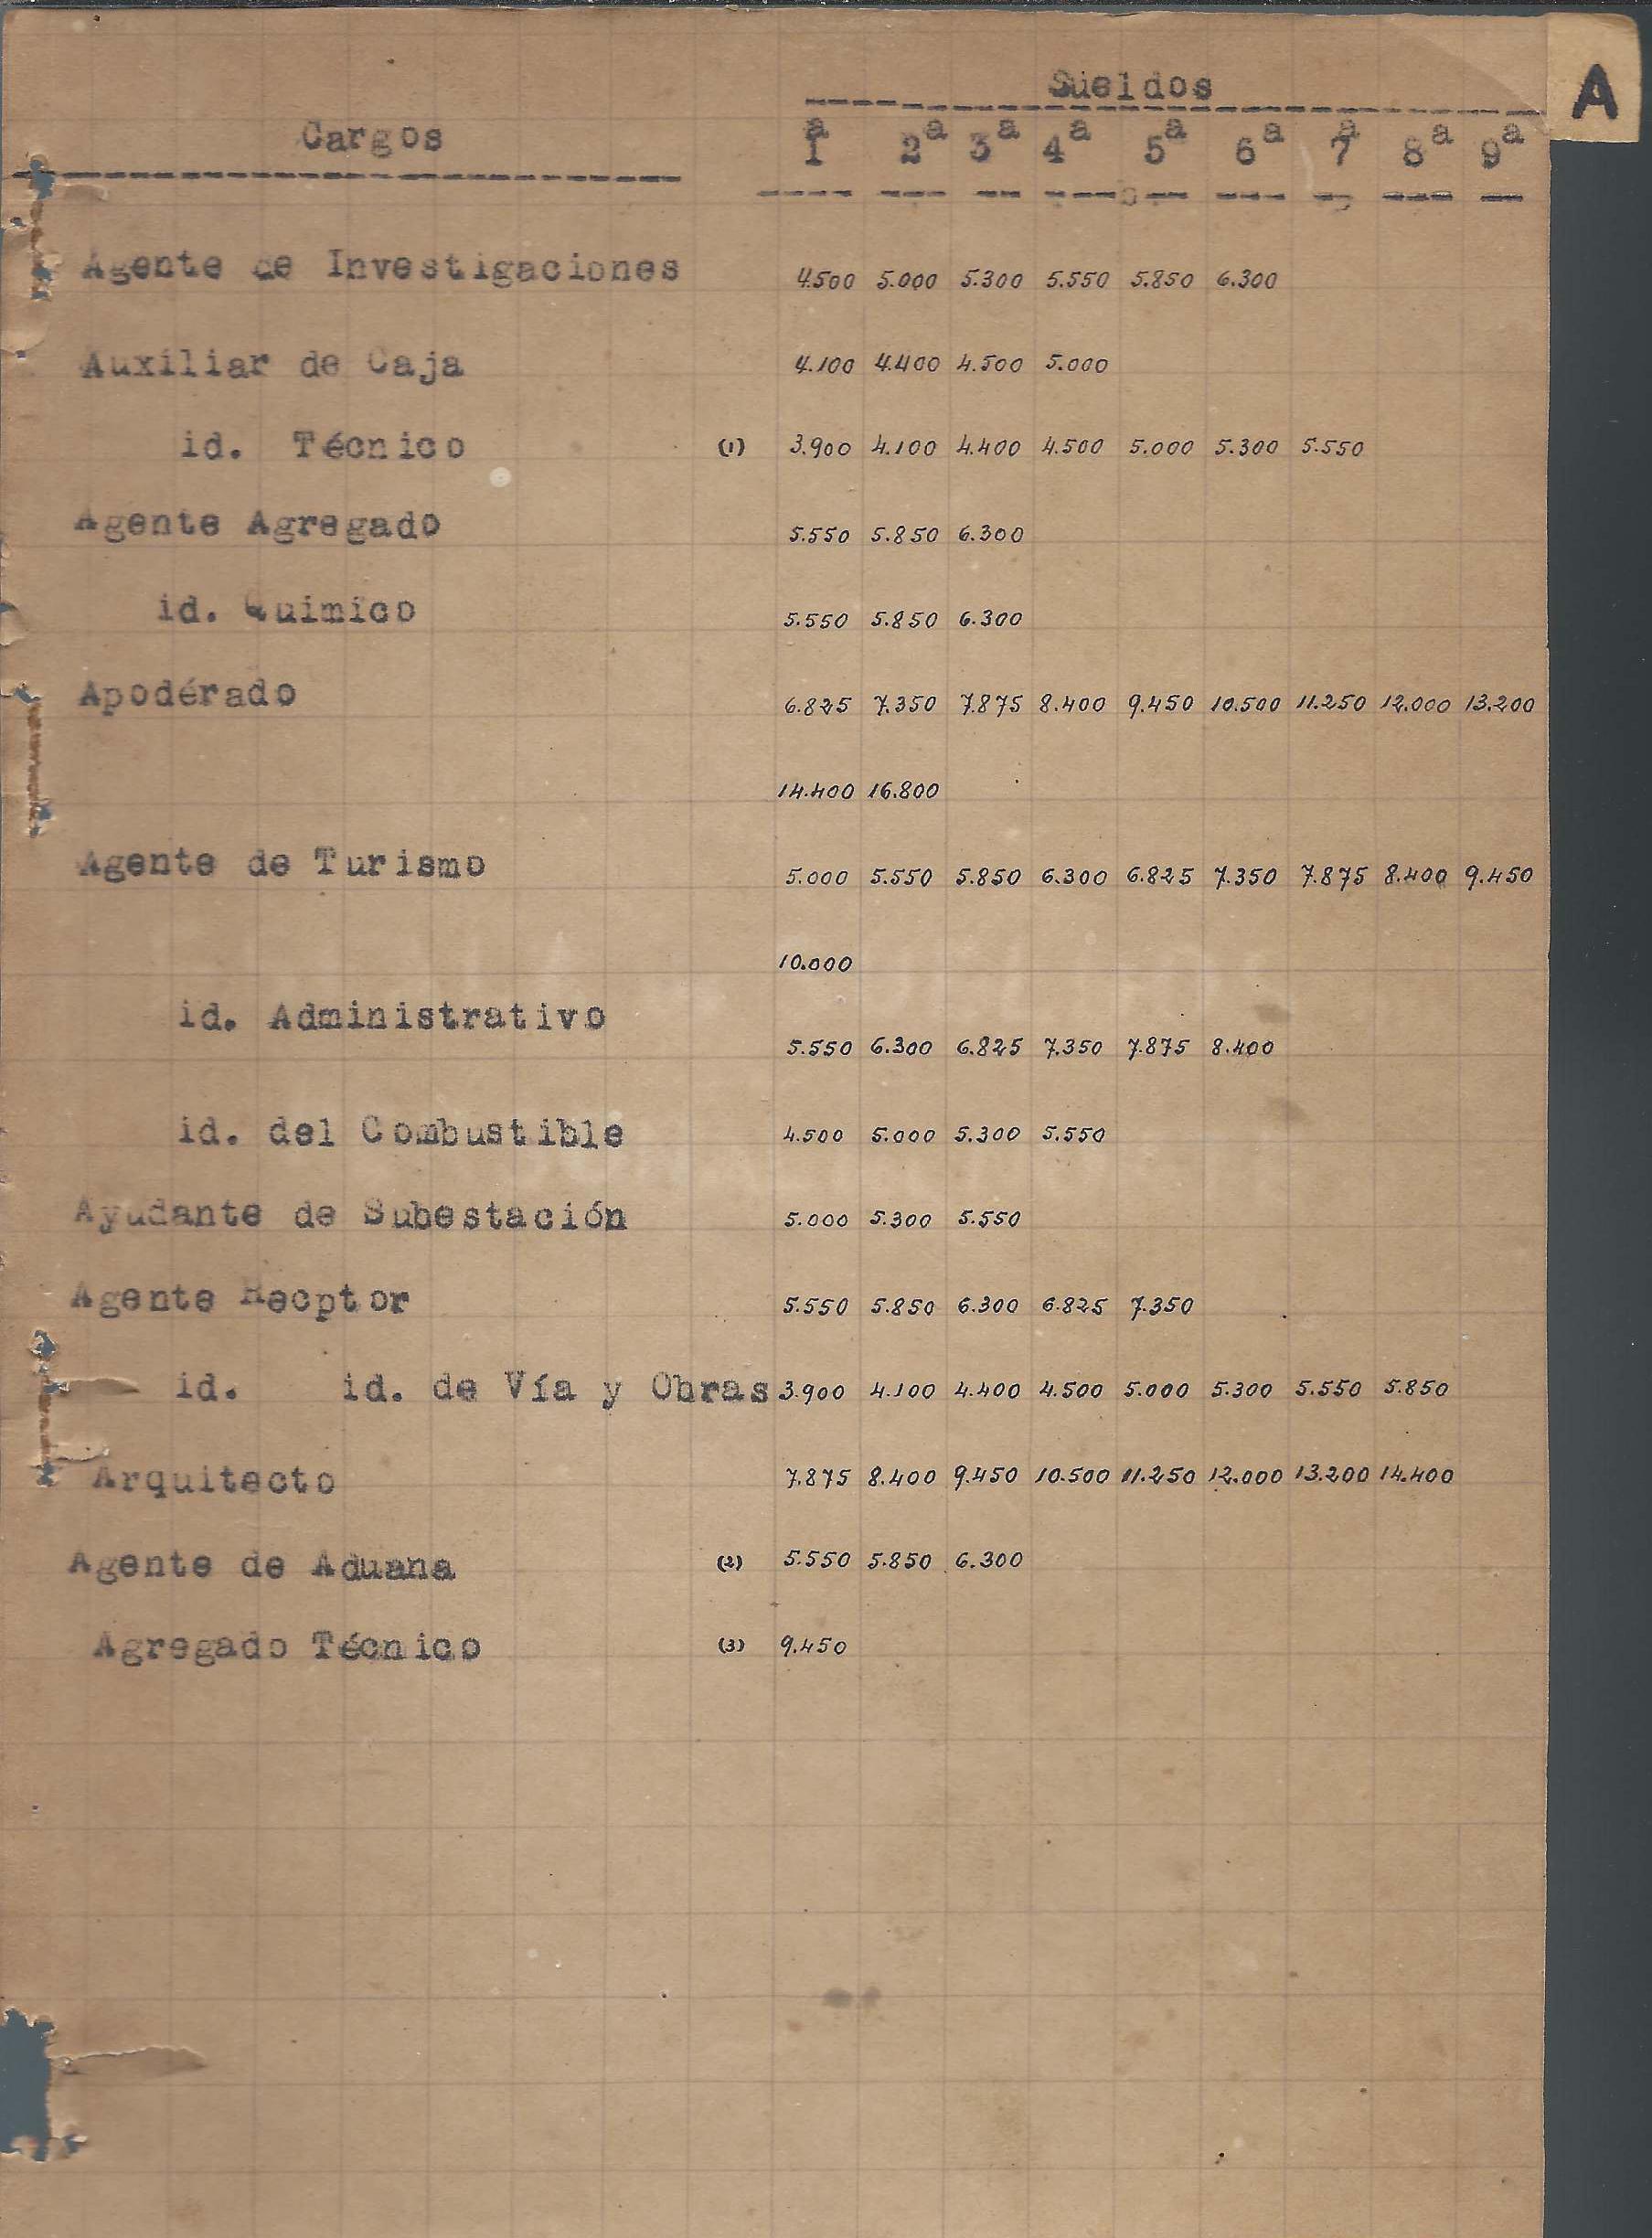 A
Sueldos
Cargos 1ª 2ª 3ª 4ª 5ª 6ª 7ª 8ª 9ª
Agente de Investigaciones 4.500 5.000 5.300 5.550 5.850 6.300
Auxiliar de Caja 4.100 4.400 4.500 5.000
id. Técnico (1) 3.900 4.100 4.400 4.500 5.000 5.300 5.550
Agente Agregado 5.550 5.850 6.300
id. Quimico 5.550 5.850 6.300
Apodérado 6.825 7.350 7.875 8.400 9.450 10.500 11.250 12.000 13.200
14.400 16.800
Agente de Turismo 5.000 5.550 5.850 6.300 6.825 7.350 7.875 8.400 9.450
10.000
id. Administrativo 5.550 6.300 6.825 7.350 7.875 8.400
id. del Combustible 4.500 5.000 5.300 5.550
Ayudante de Subestación 5.000 5.300 5.550
Agente Recptor 5.550 5.850 6.300 6.825 7.350
id. id. de Vía y Obras 3.900 4.100 4.400 4.500 5.000 5.300 5.550 5.850
Arquitecto 7.875 8.400 9.450 10.500 11.250 12.000 13.200 14.400
Agente de Aduana (2) 5.550 5.850 6.300
Agregado Técnico (3) 9.450